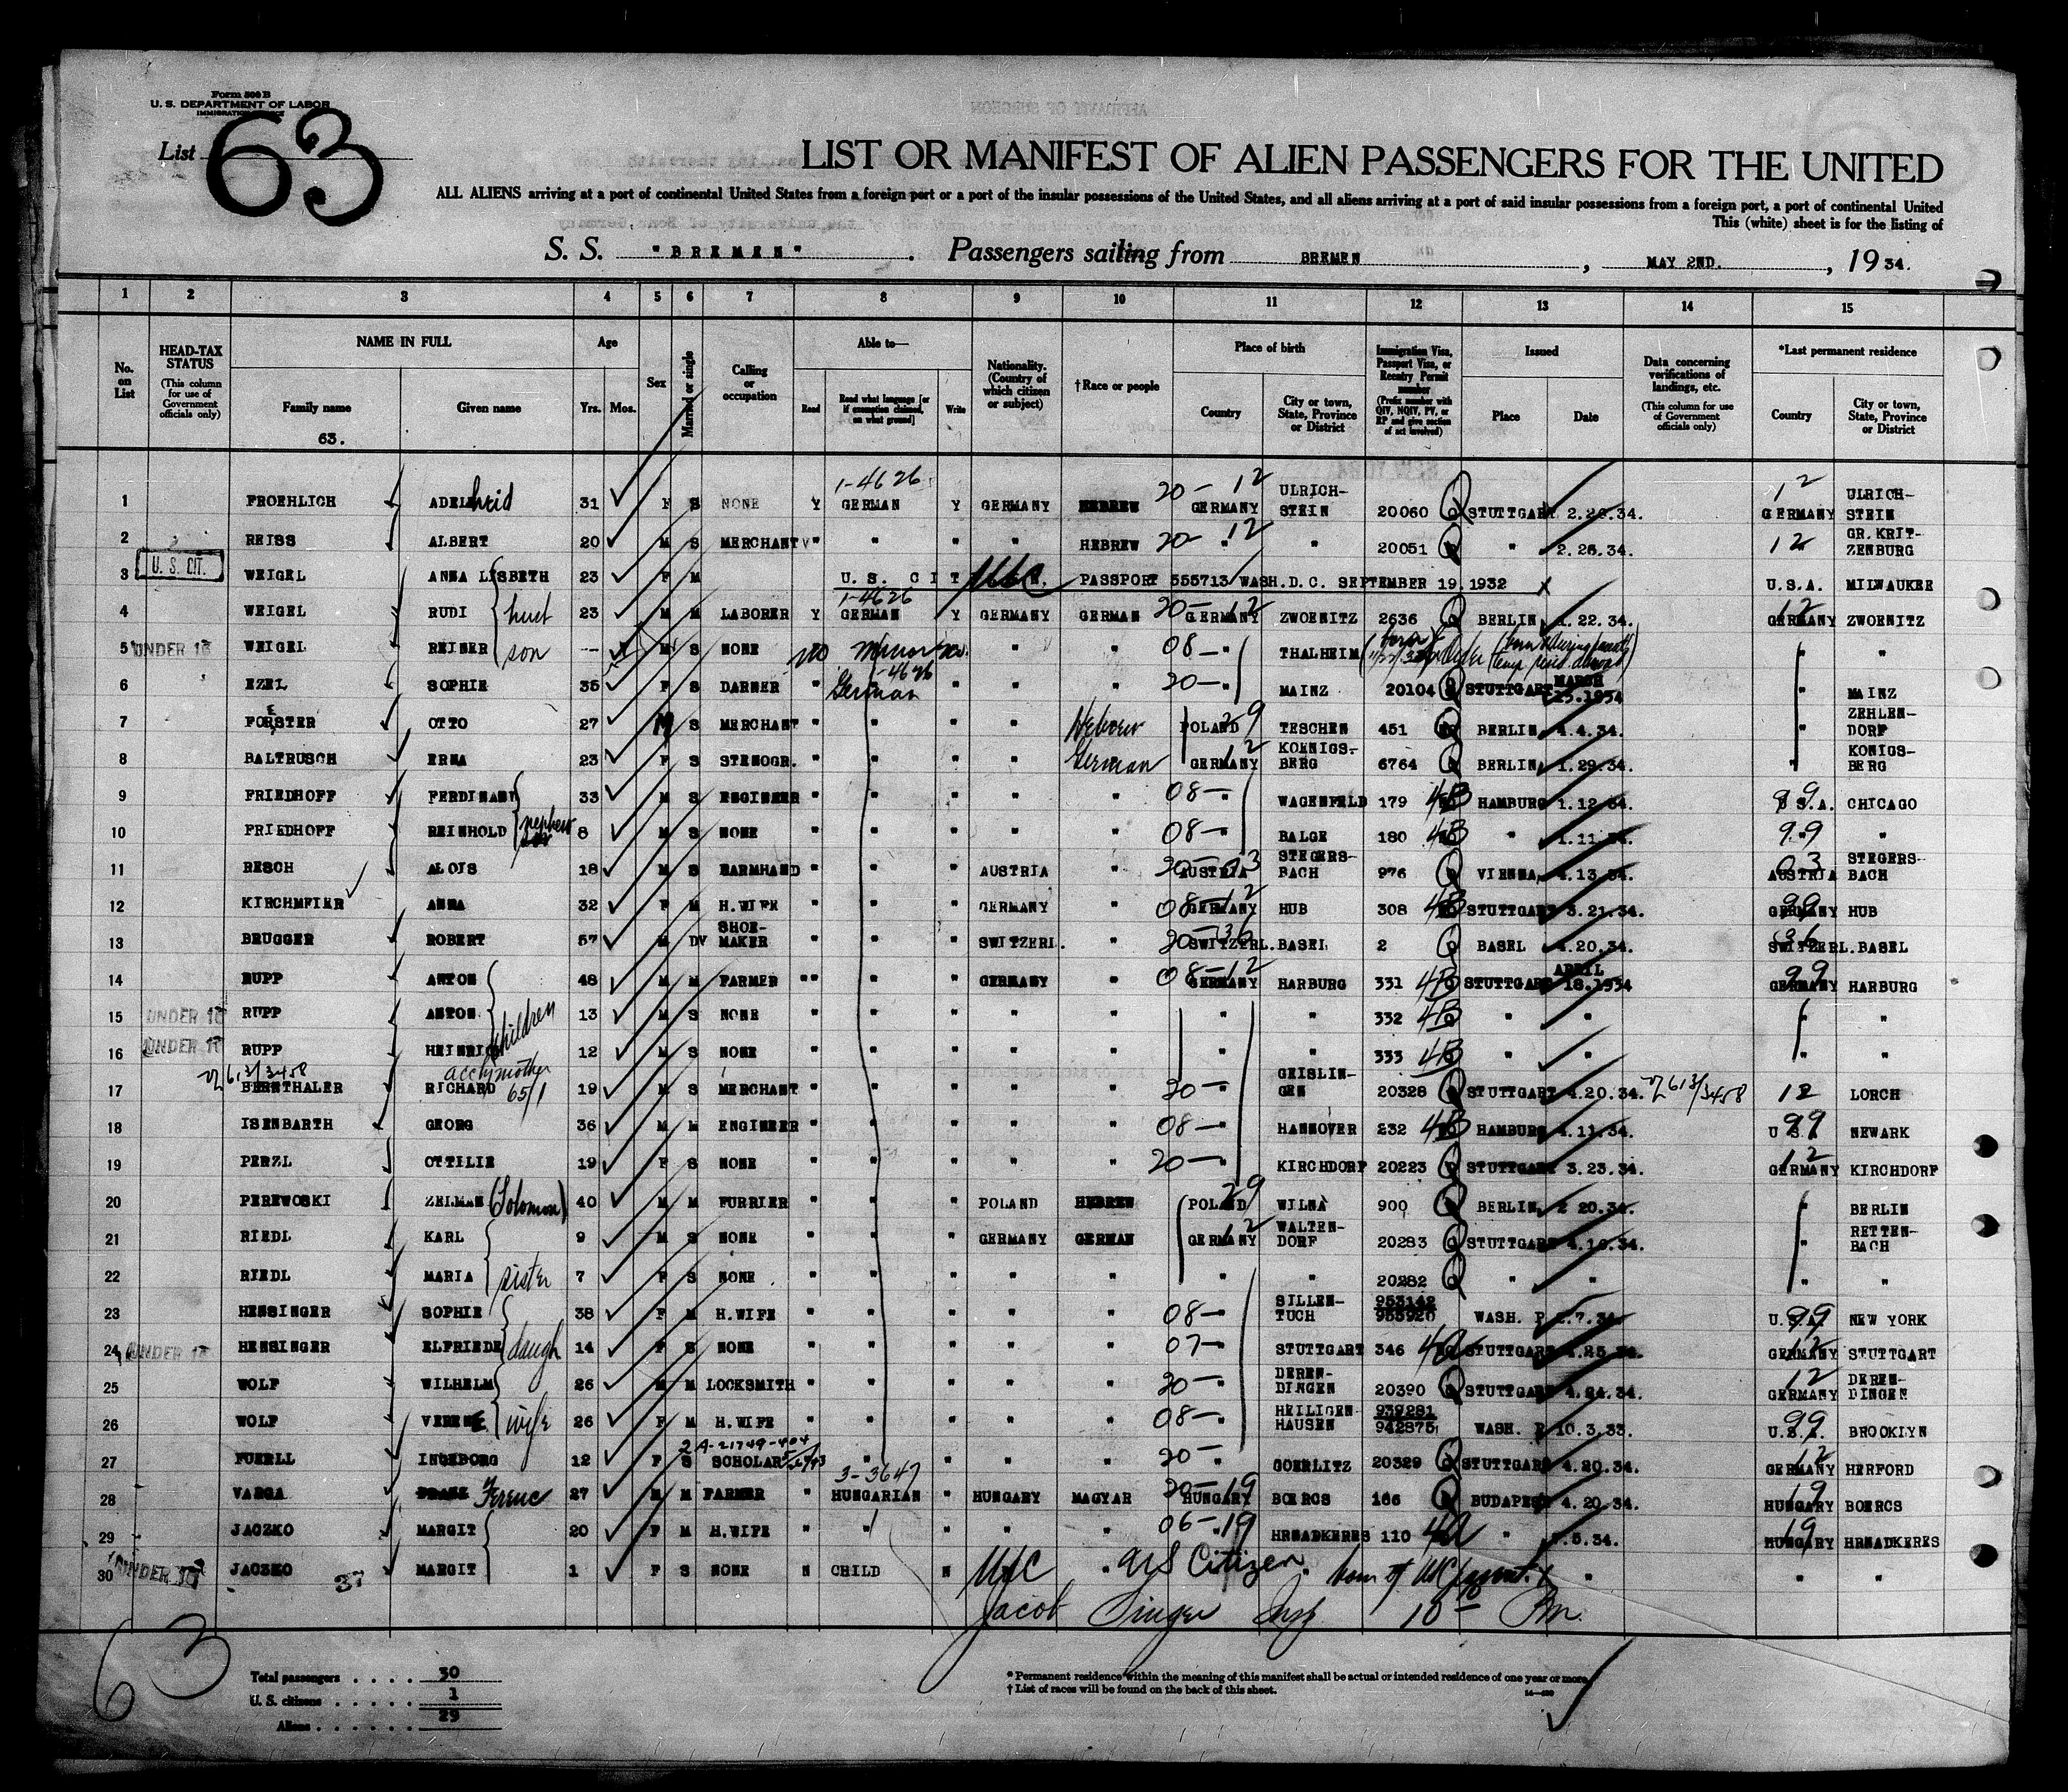 Form 500 B
U. S. DEPARTMENT OF LABOR
List 63
LIST OR MANIFEST OF ALIEN PASSENGERS FOR THE UNITED
ALL ALIENS arriving at a port of continental United States from a foreign port or a port of the insular possessions of the United States, and all aliens arriving at a port of said insular possessions from a foreign port, a port of continental United
This (white) sheet is for the listing of
S. S. "BREMEN" . Passengers sailing from BREMEN , MAY 2ND. , 19 34.
1 2 3 4 5 6 7 8 9 10 11 12 13 14 15
No. on List
HEAD-TAX STATUS (This column for use of Government officials only)
NAME IN FULL Family name Given name
63.
Age Yrs. Mos.
Sex
Married or single
Calling or occupation
Able to— Read Read what language [or if exemption claimed, on what ground] Write
Nationality. (Country of which citizen or subject)
†Race or people
Place of birth Country City or town, State, Province or District
Immigration Visa, Passport Visa, or Reentry Permit number (Prefix number with QIV, NQIV, PV, or RP and give section of act involved)
Issued Place Date
Data concerning verifications of landings, etc. (This column for use of Government officials only)
*Last permanent residence Country City or town, State, Province or District
1 FROEHLICH ADELheid 31 F S NONE Y 1-4626 GERMAN Y GERMANY HEBREW 20-12 GERMANY ULRICH-STEIN 20060 Q STUTTGART 2.26.34. 12 GERMANY ULRICH-STEIN
2 REISS ALBERT 20 M S MERCHANT " " " " HEBREW 20-12 " " 20051 Q " 2.26.34. 12 GR.KRIT-ZENBURG
U. S. CIT.
3 WEIGEL ANNA LISBETH 23 F M U.S. CIT USC PASSPORT 555713 WASH.D.C. SEPTEMBER 19.1932 X U.S.A. MILWAUKEE
4 WEIGEL RUDI husb 23 M M LABORER Y 1-4626 GERMAN Y GERMANY GERMAN 20-12 GERMANY ZWOENITZ 2636 Q BERLIN 1.22.34. 12 GERMANY ZWOENITZ
5 UNDER 16 WEIGEL REINER son -- M S NONE no Minor no " " 08- " THALHEIM " "
6 EZEL SOPHIE 35 F S DARNER " 1-4626 German " " " 20- " MAINZ 20104 Q STUTTGART MARCH 15.1934 " MAINZ
7 FOERSTER OTTO 27 M S MERCHANT " " " " Hebrew POLAND 29 TESCHEN 451 Q BERLIN 4.4.34. " ZEHLEN-DORF
8 BALTRUSCH ERNA 23 F S STENOGR. " " " " German GERMANY 12 KOENIGS-BERG 6764 Q BERLIN 1.29.34. " KONIGS-BERG
9 FRIEDHOFF FERDINAND 33 M S ENGINEER " " " " " 08- " WAGENFELD 179 4B HAMBURG 1.12.34. 99 U.S.A. CHICAGO
10 FRIEDHOFF REINHOLD nephew 8 M S NONE " " " " " 08- " BALGE 180 4B " 1.11.34. 99 " "
11 RESCH ALOIS 18 M S FARMHAND " " " AUSTRIA " 20-03 AUSTRIA STEGERS-BACH 976 Q VIENNA 4.13.34. 03 AUSTRIA STEGERS-BACH
12 KIRCHMEIER ANNA 32 F M H.WIFE " " " GERMANY " 08-12 GERMANY HUB 308 4B STUTTGART 3.21.34. 99 GERMANY HUB
13 BRUGGER ROBERT 57 M DV SHOE-MAKER " " " SWITZERL. " 20-36 SWITZERL. BASEL 2 Q BASEL 4.20.34. 36 SWITZERL. BASEL
14 RUPP ANTON 48 M M FARMER " " " GERMANY " 08-12 GERMANY HARBURG 331 4B STUTTGART APRIL 18.1934 99 GERMANY HARBURG
15 UNDER 16 RUPP ANTON children 13 M S NONE " " " " " " " 332 4B " " " "
16 UNDER 16 RUPP HEINRICH 12 M S NONE " " " " " " " 333 4B " " " "
accy mother 65/1
17 BERNTHALER RICHARD 19 M S MERCHANT " " " " " 20- " GEISLIN-GEN 20328 Q STUTTGART 4.20.34. 12 LORCH
18 ISENBARTH GEORG 36 M M ENGINEER " " " " " 08- " HANNOVER 232 4B HAMBURG 4.11.34. 99 U.S.A. NEWARK
19 PERZL OTTILIE 19 F S NONE " " " " " 20- " KIRCHDORF 20223 Q STUTTGART 3.23.34. 12 GERMANY KIRCHDORF
20 PEREWOSKI ZELMAN (Solomon) 40 M M FURRIER " " " POLAND HEBREW POLAND 29 WILNA 900 Q BERLIN 2 20.34. " BERLIN
21 RIEDL KARL 9 M S NONE " " " GERMANY GERMAN GERMANY 12 WALTEN-DORF 20283 Q STUTTGART 4.16.34. " RETTEN-BACH
22 RIEDL MARIA sister 7 F S NONE " " " " " " " 20282 Q " " " "
23 HENSINGER SOPHIE 38 F M H.WIFE " " " " " 08- " SILLEN-TUCH 953142 953920 WASH. P 2.7.34. 99 U.S.A. NEW YORK
24 UNDER 16 HENSINGER ELFRIEDE daugh 14 F S NONE " " " " " 07- " STUTTGART 346 4a STUTTGART 4.25.34. 12 GERMANY STUTTGART
25 WOLF WILHELM 26 M M LOCKSMITH " " " " " 20- " DEREN-DINGEN 20390 Q STUTTGART 4.24.34. 12 GERMANY DEREN-DINGEN
26 WOLF VERENE wife 26 F M H.WIFE " " " " " 08- " HEILIGEN HAUSEN 939281 942875 WASH. P 10.3.33. 99 U.S.A. BROOKLYN
27 FUERLL INGEBORG 12 F S 2A-21749-404 SCHOLAR " " " " " 20- " GOERLITZ 20329 Q STUTTGART 4.20.34. 12 GERMANY HERFORD
28 VARGA FRANZ Ferenc 27 M M FARMER " 3-3647 HUNGARIAN " HUNGARY MAGYAR 20-19 HUNGARY BOERCS 166 Q BUDAPEST 4.20.34. 19 HUNGARY BOERCS
29 JACZKO MARGIT 20 F M H.WIFE " " " " " 06-19 " HRNADKERES 110 4a " .5.34. 19 HUNGARY HRNADKERES
30 UNDER 16 JACZKO 37 MARGIT 1 F S NONE N CHILD N USC US Citizen " "
Jacob Singer Insp 10
63
Total passengers . . . . 30
U. S. citizens . . . . . 1
Aliens . . . . . . 29
* Permanent residence within the meaning of this manifest shall be actual or intended residence of one year or more.
† List of races will be found on the back of this sheet.